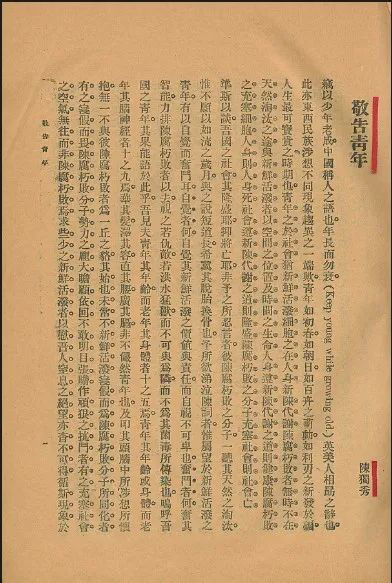 敬告青年
陳獨秀
竊以少年老成中國稱人之語也年長而勿衰(Keep young while growing old)英美人相勗之辭也
此亦東西民族涉想不同現象趨異之一端歟青年如初春如朝日如百卉之萌動如利刃之新發於硎
人生最可寶貴之時期也青年之於社會猶新鮮活潑細胞之在人身新陳代謝陳腐朽敗者無時不在
天然淘汰之途與新鮮活潑者以空間之位置及時間之生命人身遵新陳代謝之道則健康陳腐朽敗
之細胞充塞人身則人身死社會遵新陳代謝之道則隆盛陳腐朽敗之分子充塞社會則社會亡
準斯以談吾國之社會其隆盛耶抑將亡耶非予之所忍言者彼陳腐朽敗之分子一聽其天然之淘汰
雅不願以如流之歲月與之說短道長希冀其脫胎換骨也予所欲涕泣陳詞者惟屬望於新鮮活潑之
青年有以自覺而奮鬥耳自覺者何自覺其新鮮活潑之價值與責任而自視不可卑也奮鬥者何奮其
智能力排陳腐朽敗者以去視之若仇敵若洪水猛獸而不可與為鄰而不為其菌毒所傳染也嗚呼吾
國之青年其果能語於此乎吾見夫青年其年齡而老年其身體者十之五焉青年其年齡或身體而老
年其腦神經者十之九焉華其髮澤其容直其腰廣其膈非不儼然青年也及叩其頭腦中所涉想所懷
抱無一不與彼陳腐朽敗者為一丘之貉其始也未嘗不新鮮活潑寖假而為陳腐朽敗分子所同化者
有之寖假而畏陳腐朽敗分子勢力之龐大瞻顧依回不敢明目張膽作頑狠之抗鬥者有之充塞社會
之空氣無往而非陳腐朽敗焉求些少之新鮮活潑者以慰吾人窒息之絕望亦杳不可得循斯現象於
敬告青年
一